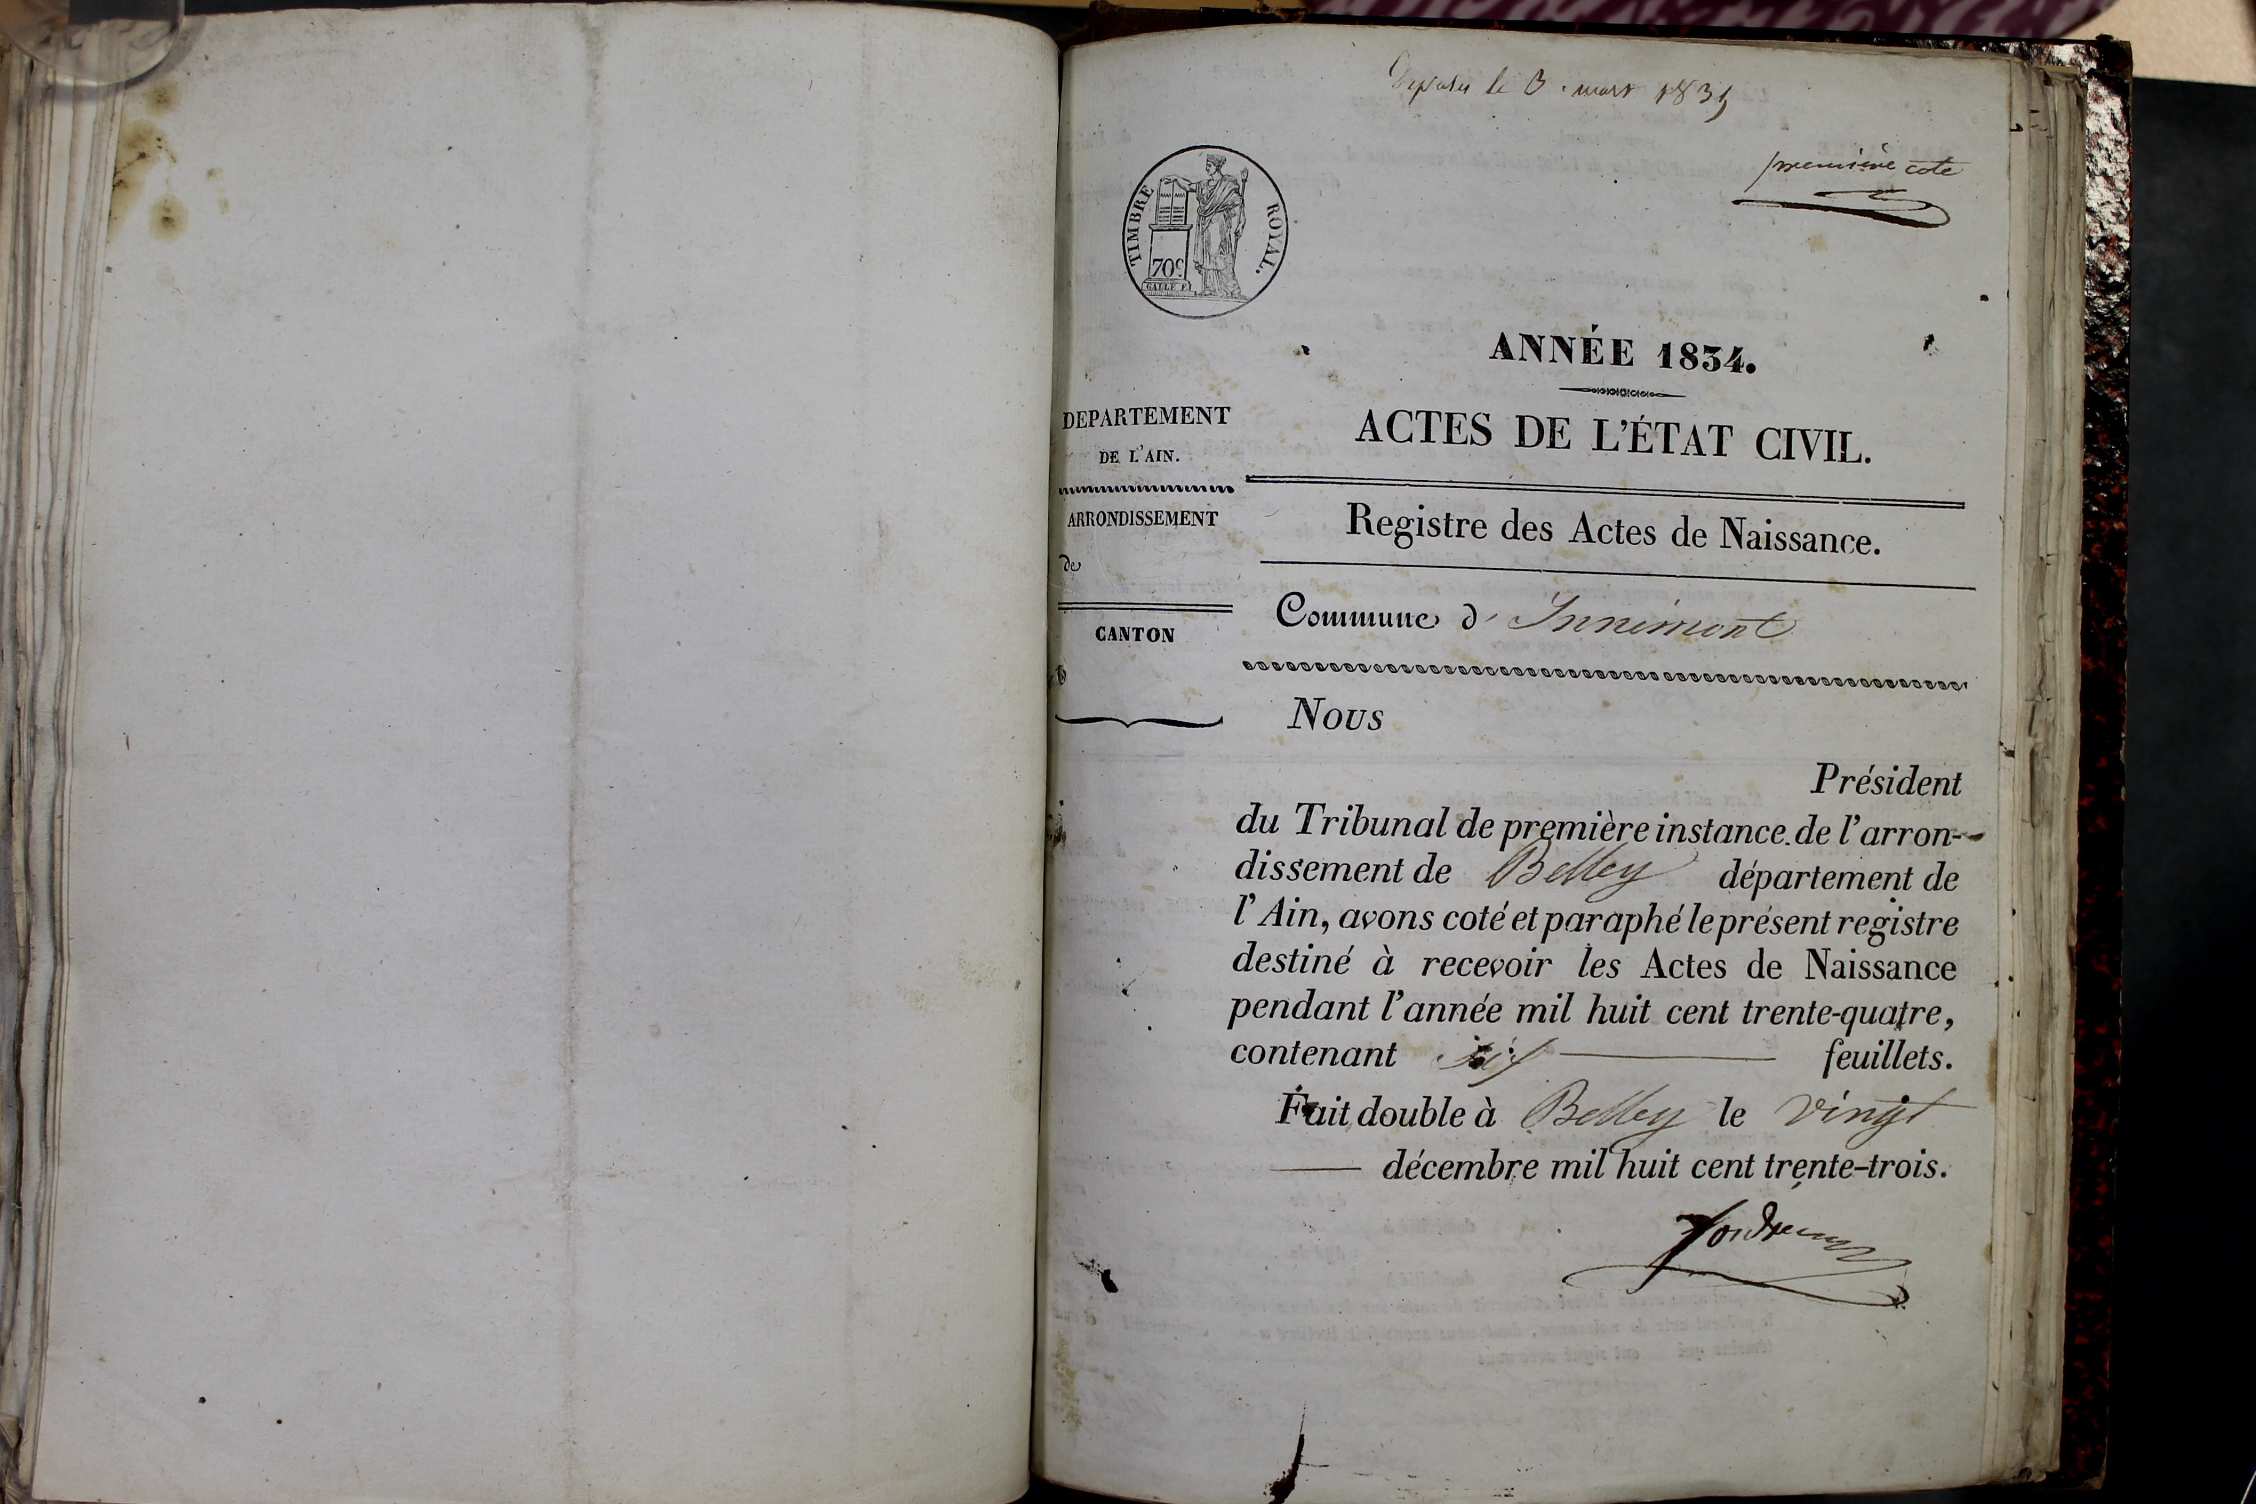 Deposé le 3. mars 1835
première cote
TIMBRE ROYAL.
70c
GALLE F.
ANNÉE 1834.
DEPARTEMENT
DE L'AIN.
ACTES DE L'ÉTAT CIVIL.
ARRONDISSEMENT
de
Registre des Actes de Naissance.
CANTON
Commune d' Innimont
Nous
Président
du Tribunal de première instance de l'arron-
dissement de Belley département de
l'Ain, avons coté et paraphé le présent registre
destiné à recevoir les Actes de Naissance
pendant l'année mil huit cent trente-quatre,
contenant six feuillets.
Fait double à Belley le vingt
décembre mil huit cent trente-trois.